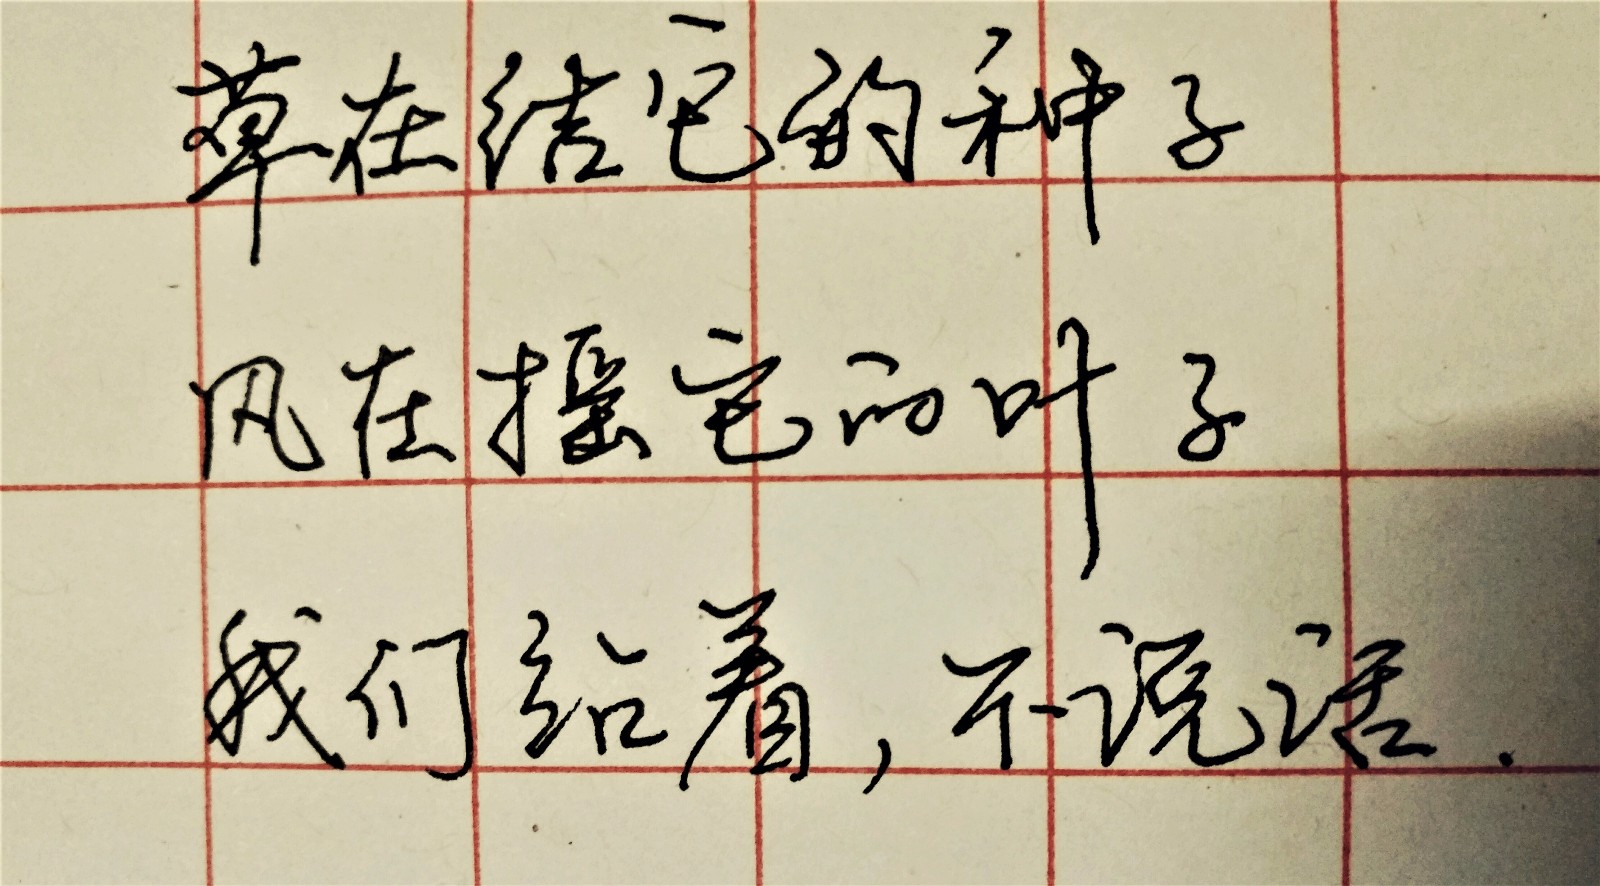 草在结它的种子
风在摇它的叶子
我们站着,不说话.